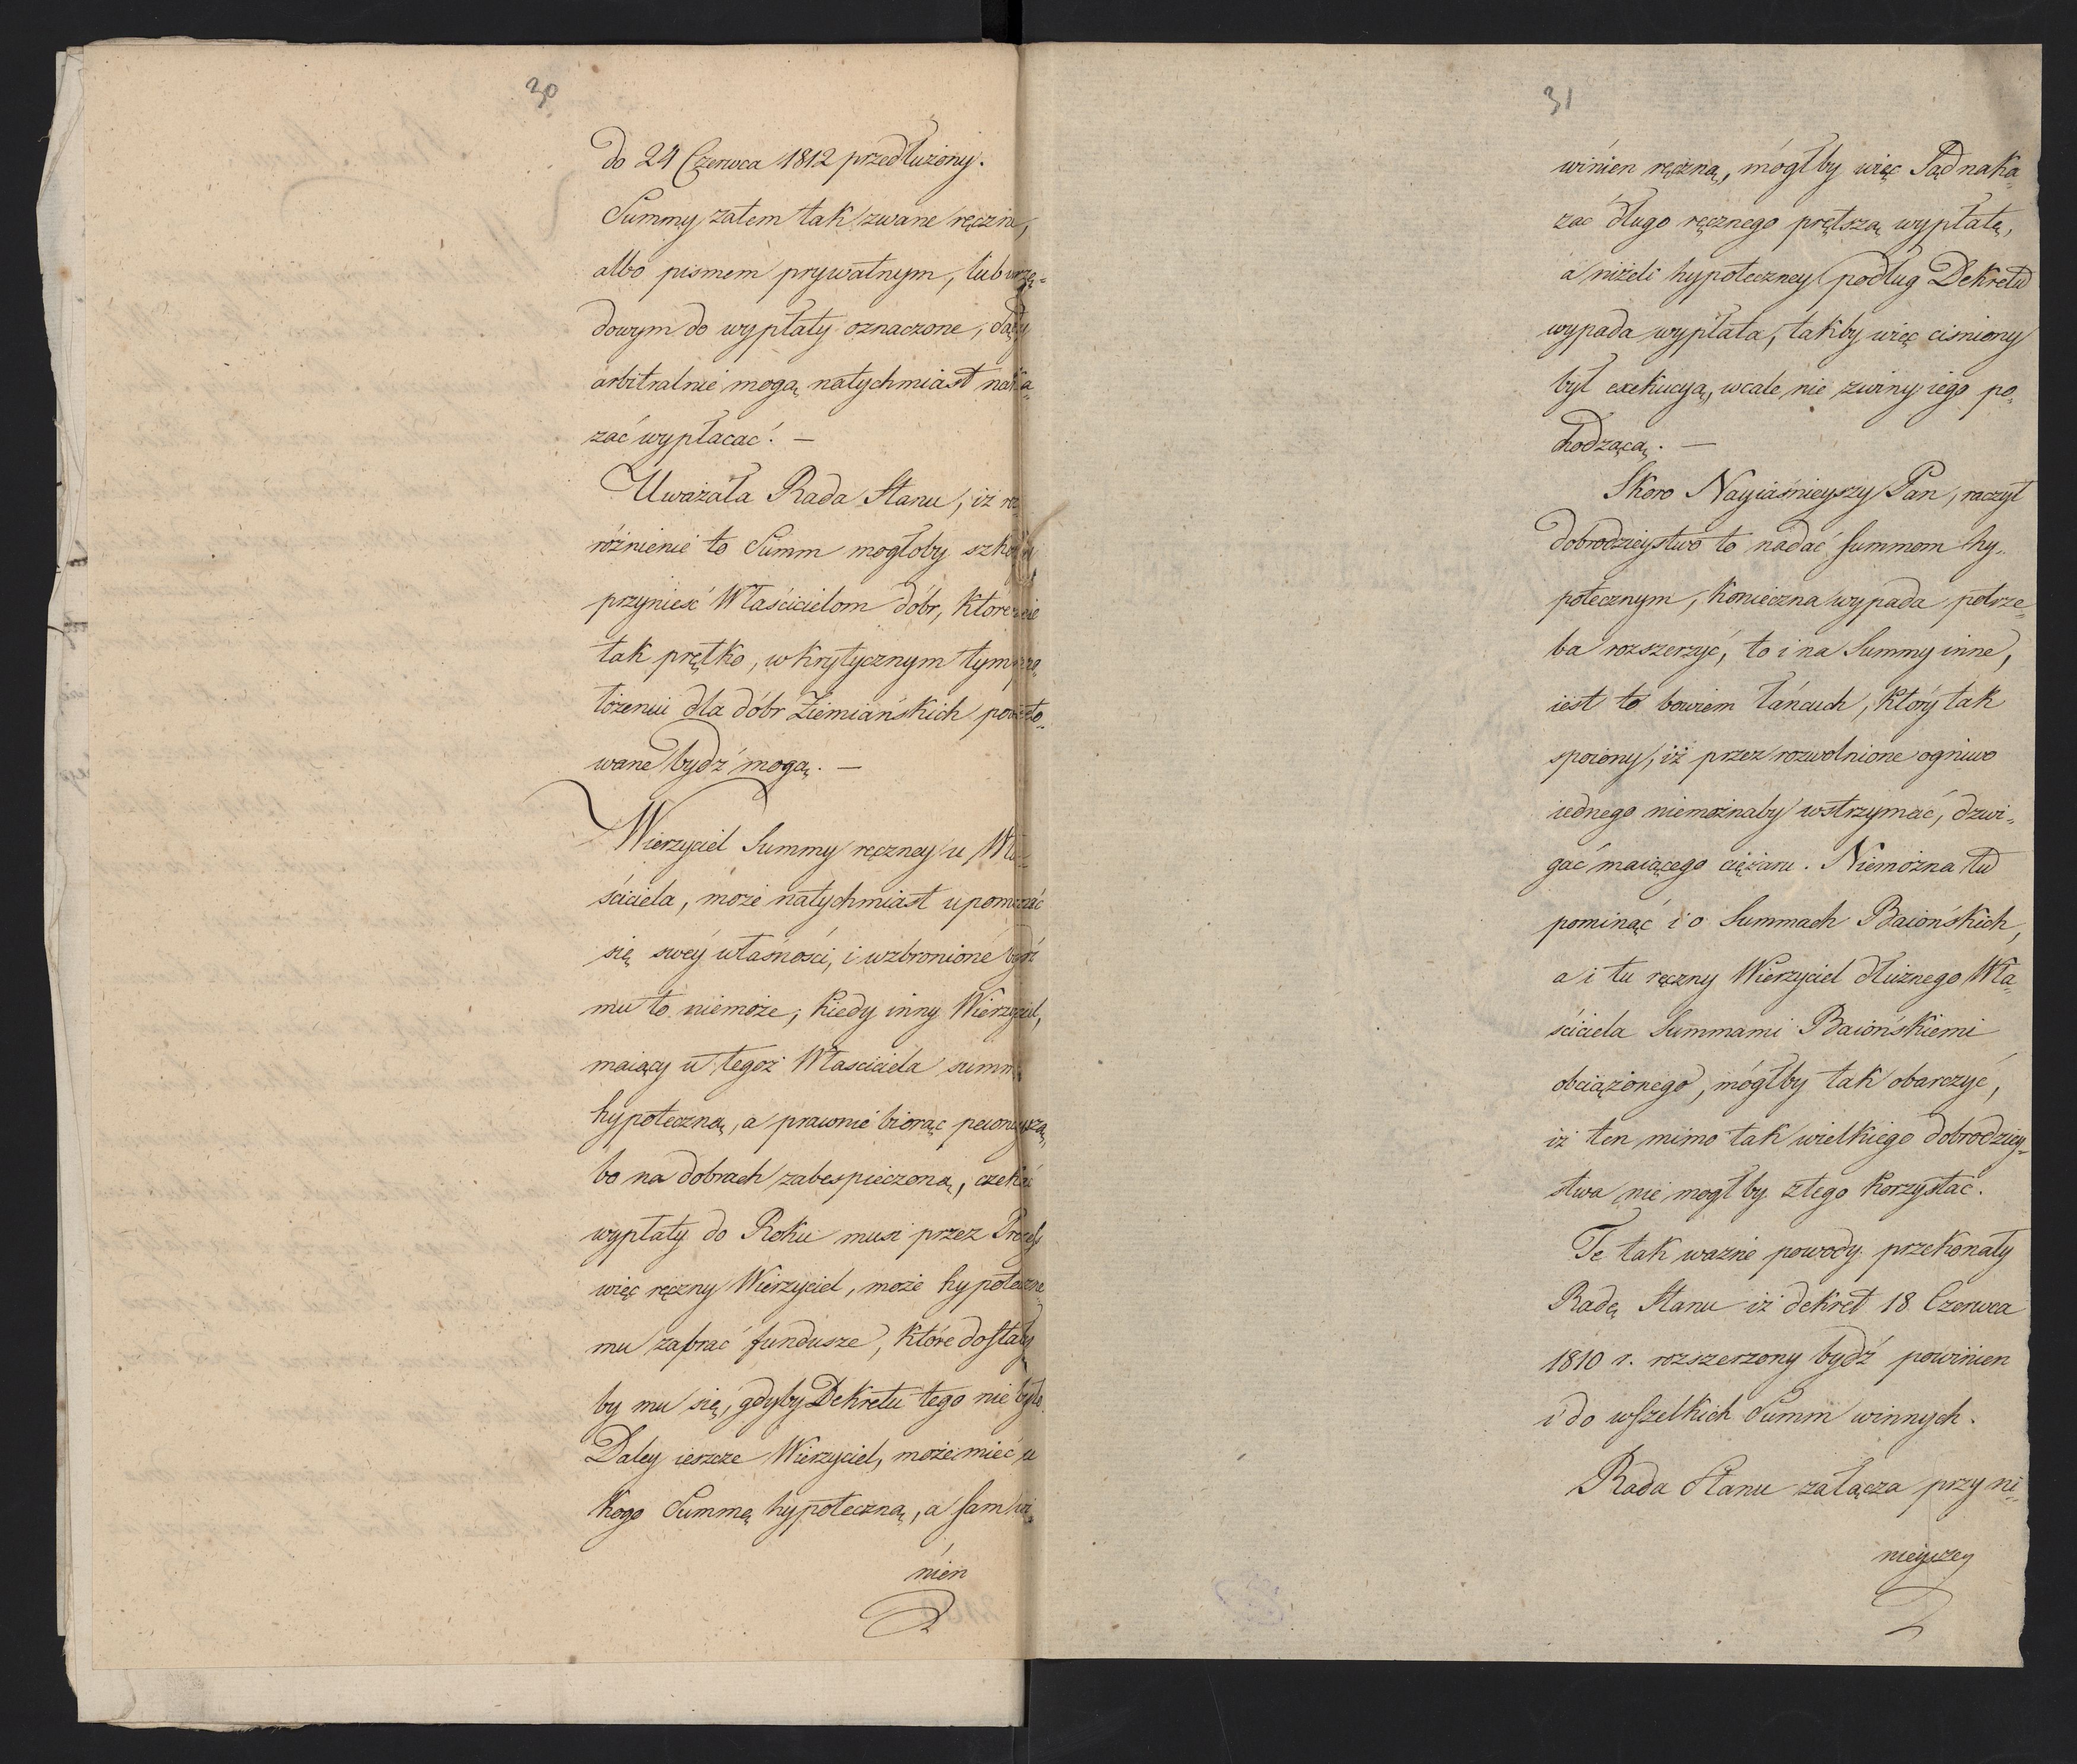 30
do 24 Czerwca 1812 przedłużony.
Summy zatem tak zwane ręczne,
albo pismem prywatnym, lub urzę-
dowym do wypłaty oznaczone, Sądy
arbitralnie mogą natychmiast naka-
zać wypłacać. —
Uważała Rada Stanu, iż ro-
różnienie to Summ mogłoby szkody
przynieść Właścicielom dóbr, które nie
tak prętko, w krytycznym tym poło-
łożeniu dla dóbr Ziemiańskich
wane bydź mogą. —
Wierzyciel Summy ręczney u Wła-
ściciela, może natychmiast upominać
się swéy własności, i wzbronione bydź
mu to niemoże; kiedy inny Wierzyciel,
maiący u tegoż Własciciela summę
hypoteczną, a prawnie biorąc pewnieyszą,
bo na dobrach zabespieczoną, czekać
wypłaty do Roku musi przez
więc ręczny Wierzyciel, może hypoteczne-
mu zabrać fundusze, które dostały
by mu się, gdyby Dekretu tego nie było.
Daley ieszcze Wierzyciel, może mieć u
kogo Summę hypoteczną, a sam wi-
nien
31
winien ręczną, mógłby więc Sąd naka-
zać długo ręcznego prętszą wypłatę,
a niżeli hypoteczney podług Dekretu
wypada wypłata, takby więc ciśniony
był exekucyą, wcale nie zwiny iego po-
chodzącą. —
Skoro Nayiaśnieyszy Pan, raczył
dobrodzieystwo to nadać summom hy-
potecznym, konieczna wypada potrze-
ba rozszerzyć, to i na Summy inne,
iest to bowiem łańcuch, który tak
spoiony, iż przez rozwolnione ogniwo
iednego niemożnaby wstrzymać, dzwi-
gać maiącego ciężaru. Niemożna tu
pominąć i o Summach Baiońskich,
a i tu ręczny Wierzyciel dłużnego Wła-
ściciela Summami Baiońskiemi
obciążonego, mógłby tak obarczyć,
iż ten mimo tak wielkiego dobrodziey-
stwa nie mogłby ztego korzystać.
Te tak ważne powody przekonały
Radę Stanu iż dekret 18 Czerwca
1810 r. rozszerzony bydź powinien
i do wszelkich Summ winnych.
Rada Stanu załącza przy ni-
nieyszey